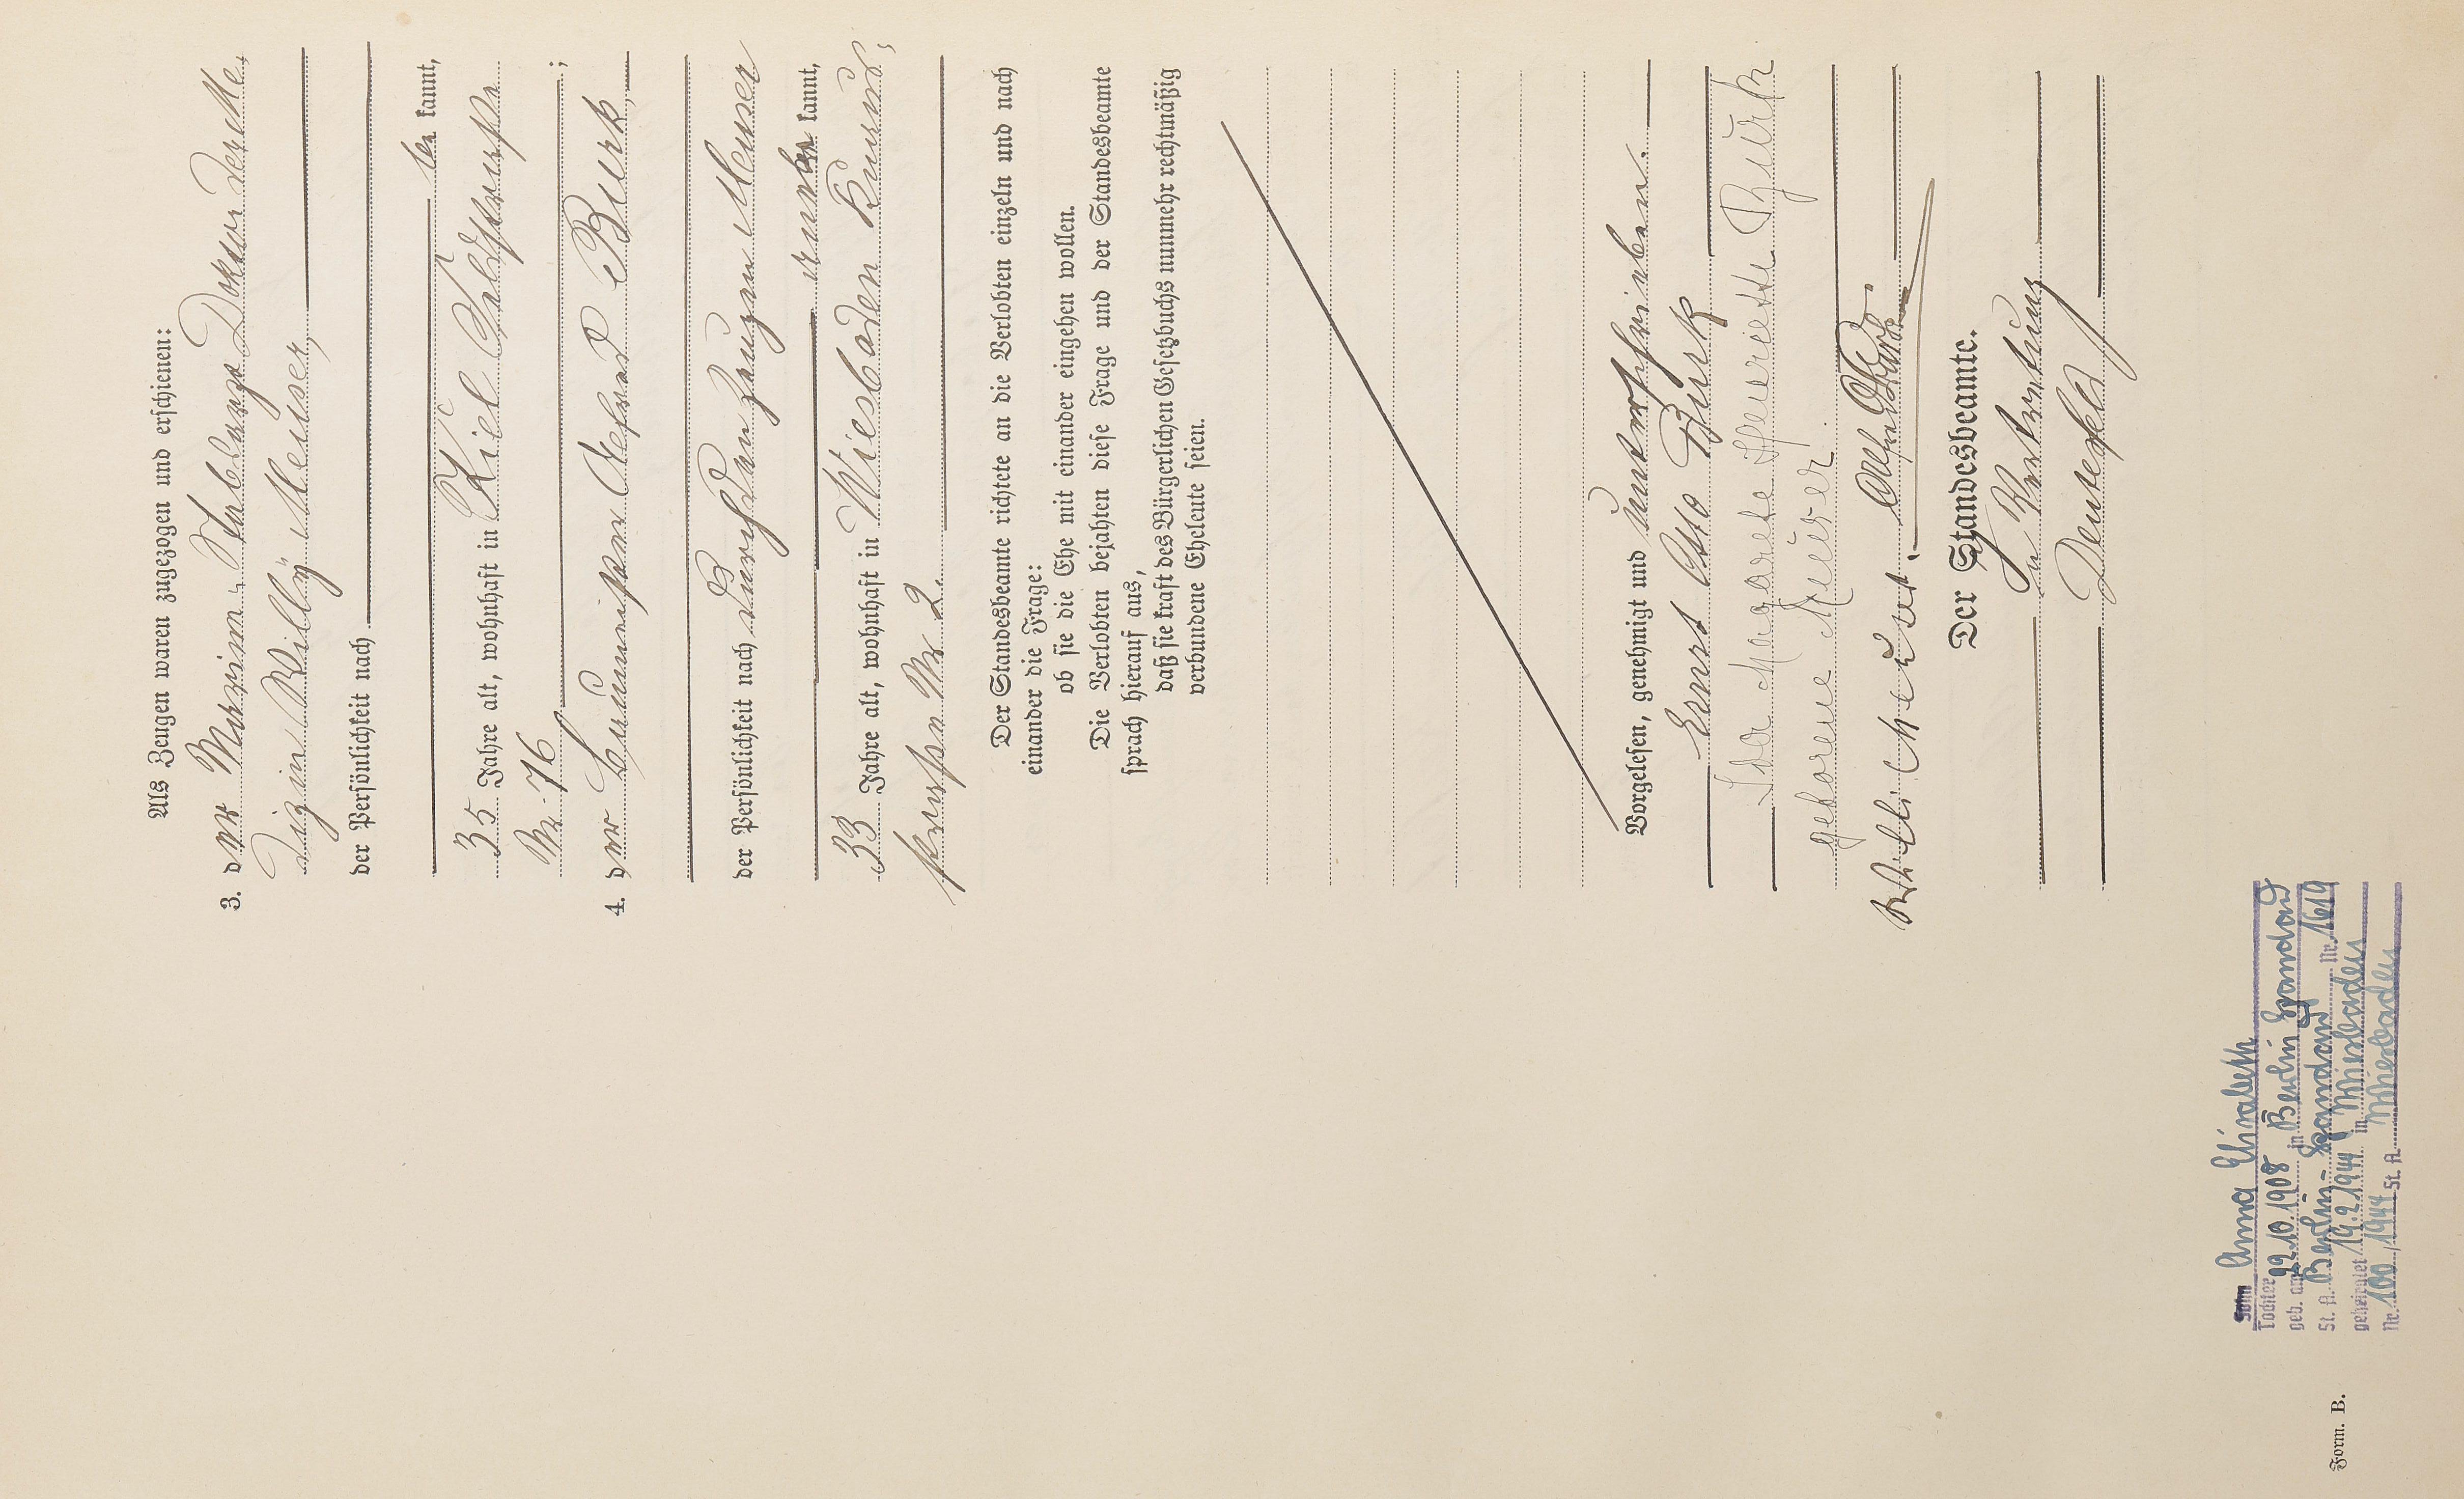 Als Zeugen waren zugezogen und erschienen:
3. der Marine-Stabsarzt Doktor der Me-
dizin Willy Meuser,
der Persönlichkeit nach
be kannt,
35 Jahre alt, wohnhaft in Kiel Feldstraße
Nr. 76 ;
4. der Baumeister Alfred Burk,
der Persönlichkeit nach durch den Zeugen Meuser
anerkannt,
33 Jahre alt, wohnhaft in Wiesbaden
straße Nr 2.
Der Standesbeamte richtete an die Verlobten einzeln und nach
einander die Frage:
ob sie die Ehe mit einander eingehen wollen.
Die Verlobten bejahten diese Frage und der Standesbeamte
sprach hierauf aus,
daß sie kraft des Bürgerlichen Gesetzbuchs nunmehr rechtmäßig
verbundene Eheleute seien.
Vorgelesen, genehmigt und unterschrieben.
Ernst Otto Burk
Ida Margarete Henriette Burk
geborene Meuser.
Willi Meuser. Alfred Burk.
Der Standesbeamte.
In Vertretung
Sohn Anna Elisabeth
Tochter
geb. am 22.10.1908 in Berlin Spandau
St. A. Berlin-Spandau Nr. 1619
geheiratet 19.2.1944 in Wiesbaden
Nr. 100/1944 St. A. Wiesbaden
Form. B.